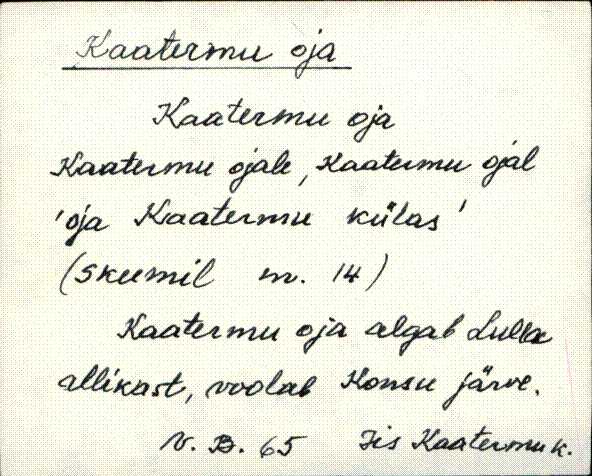 Kaatermu oja
Kaatermu oja
Kaatermu ojale, Kaatermu ojal
'oja Kaatermu külas'
(skeemil nr. 14)
Kaatermu oja algab Lulla
allikast, voolab Konsu järve.
V. B. 65 Iis Kaatermu k.